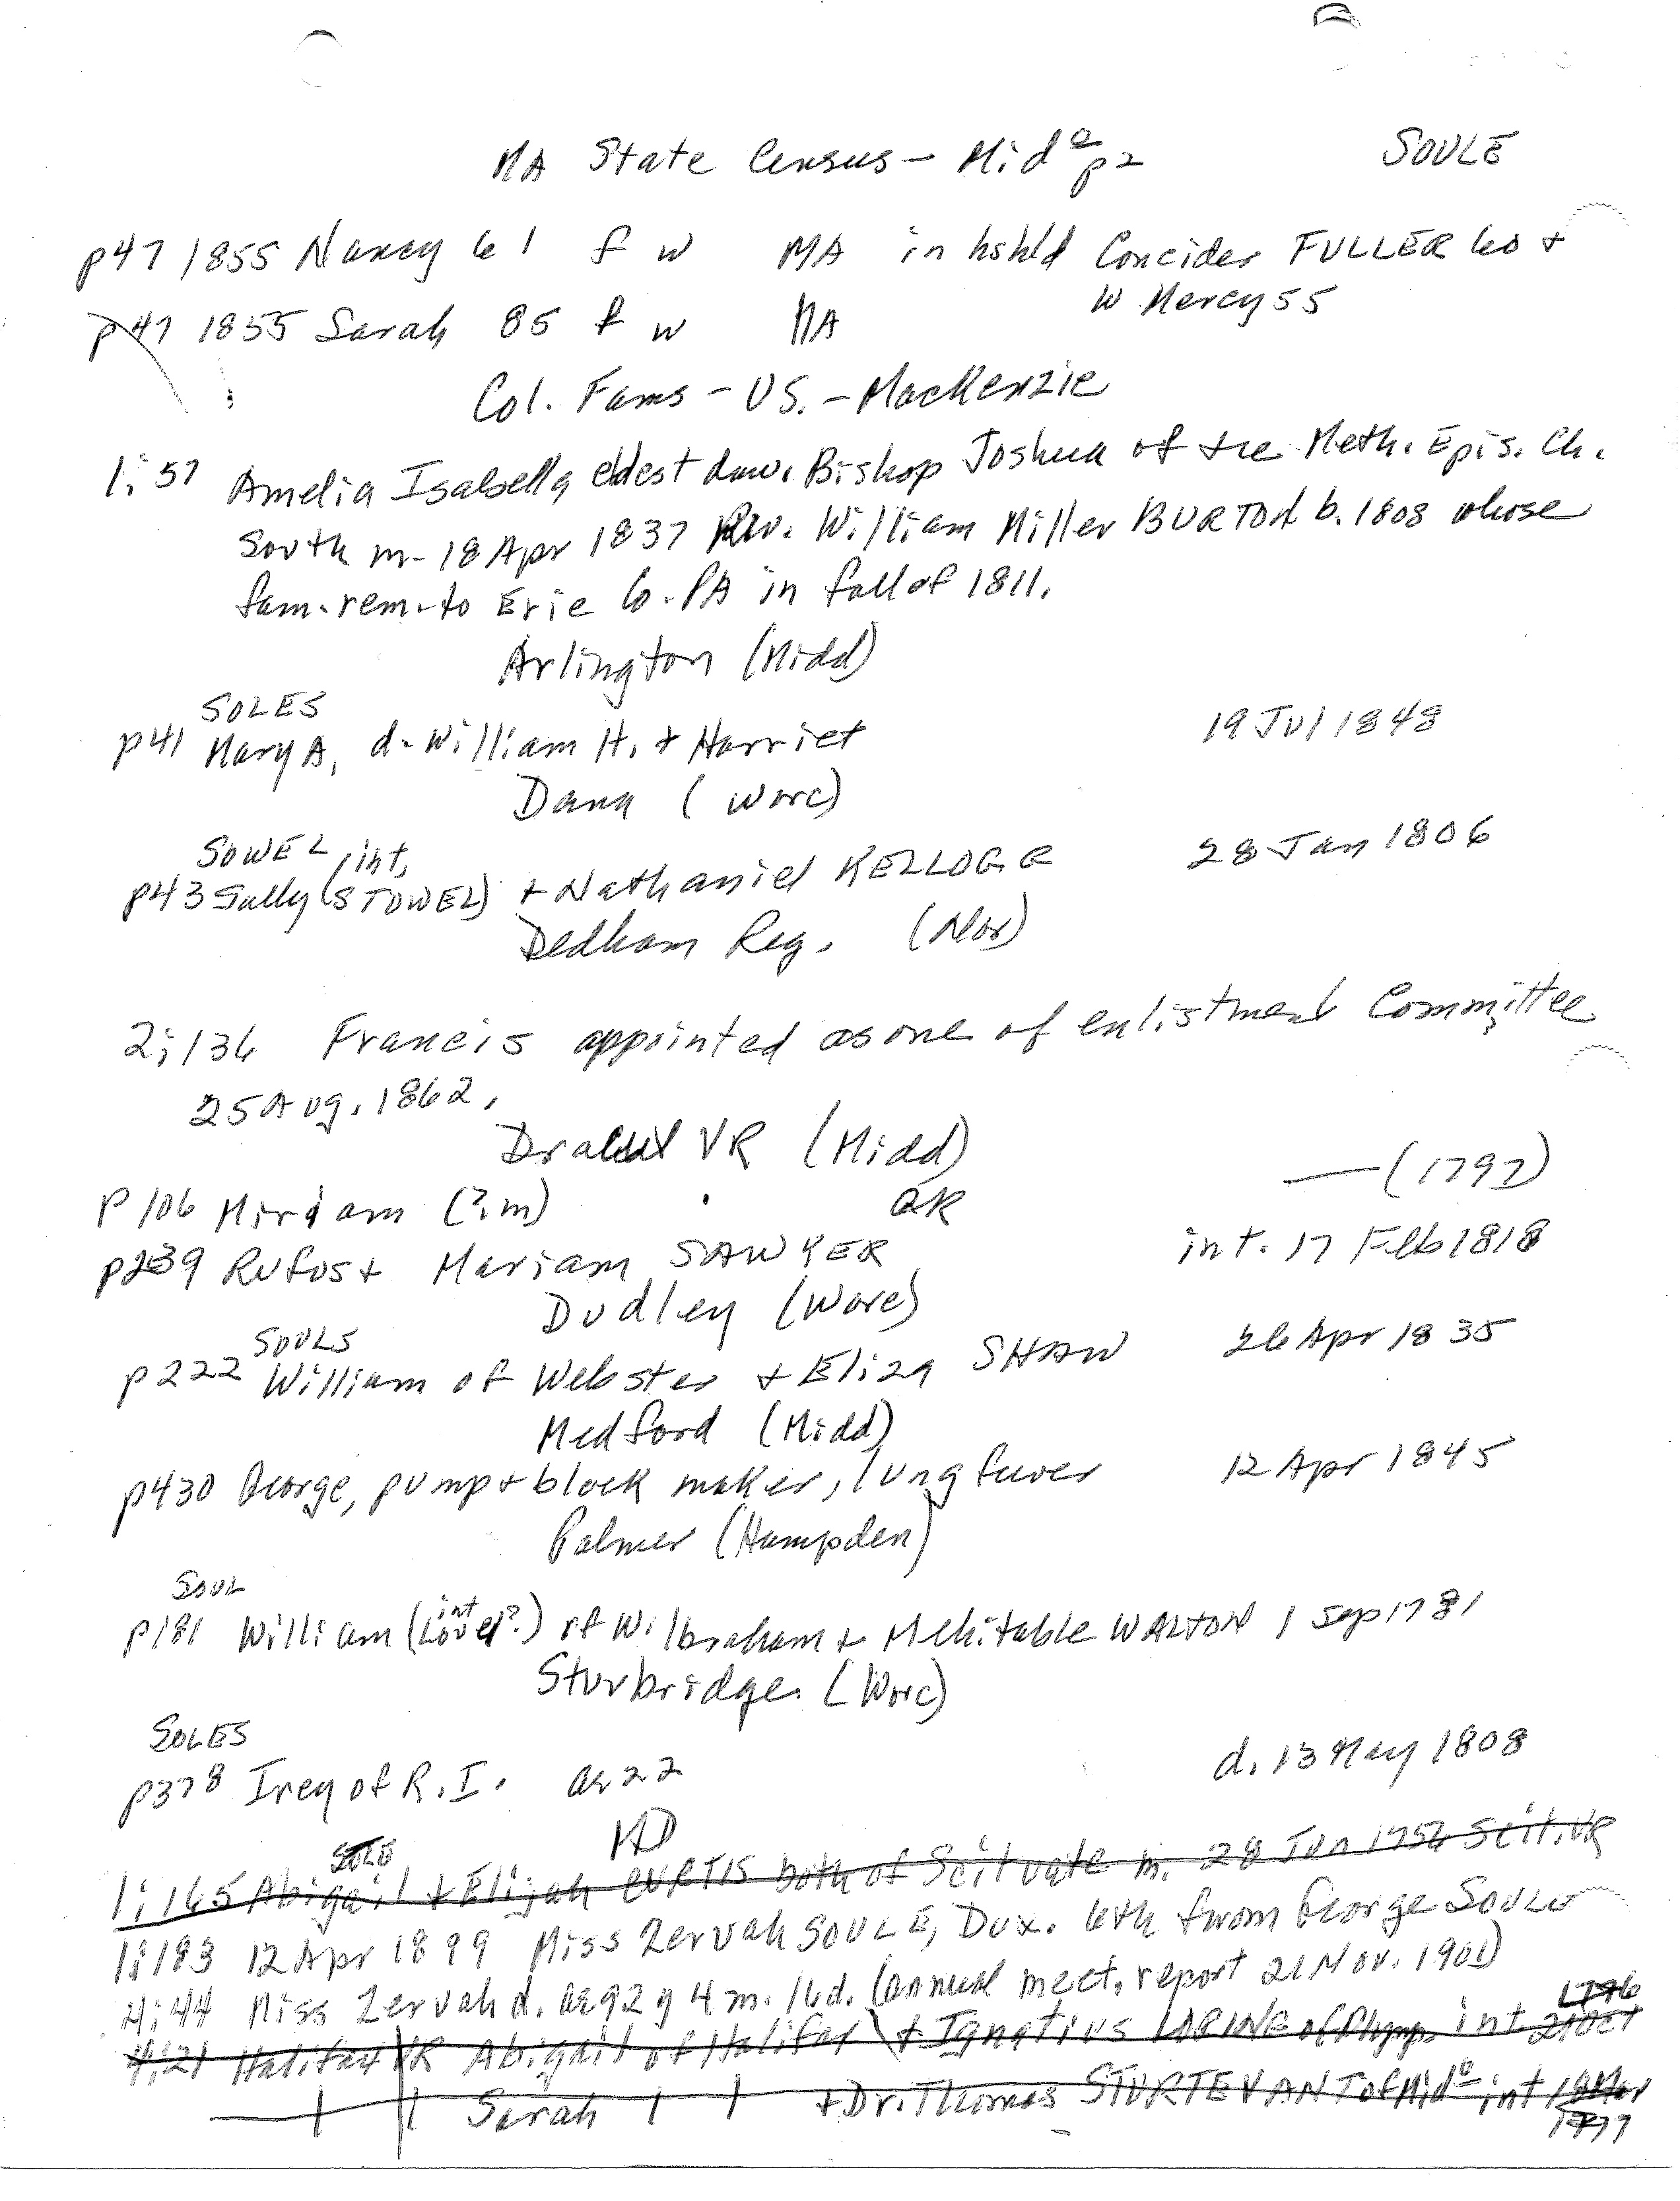 MA State Census - Mid o p2 SOULE
p47 1855 Nancy 61 f w MA in hshld Concider FULLER 60 +
W Mercy 55
p47 1855 Sarah 85 f w MA
Col. Fams - US. - MacKenzie
1:57 Amelia Isabella eldest dau. Bishop Joshua of the Meth. Epis. Ch.
South m- 18 Apr 1837 Rev. William Miller BURTON b. 1808 whose
fam. rem. to Erie Co. PA in fall of 1811.
Arlington (Midd)
SOLES
p41 Mary A, d. William H. + Harriet 19 Jul 1848
Dana (Worc)
SOWEL int,
p43 Sally (STOWEL) + Nathaniel KELLOGG 28 Jan 1806
Dedham Reg. (Nor)
2:136 Francis appointed as one of enlistment Committee
25 Aug. 1862,
Dracut VR (Midd)
p106 Miriam (?m) GR —(1797)
p239 Rufus + Mariam SAWYER int. 17 Feb 1818
Dudley (Worc)
SOULS
p222 William of Webster + Eliza SHAW 26 Apr 1835
Medford (Midd)
p430 George, pump + block maker, lung fever 12 Apr 1845
Palmer (Hampden)
SOUL
int
p181 William (Lovel?) of Wilbraham + Mehitable WALTON 1 Sep 1781
Sturbridge (Worc)
SOLES
p378 Irey of R.I. ae 22 d. 13 May 1808
MD
SOLE
1:165 Abigail + Elijah CURTIS both of Scituate m. 28 Jun 1756 Scit. VR
1:183 12 Apr 1899 Miss Zervah SOULE, Dux. 6th from George SOULE
4:44 Miss Zervah d. ae 92 y 4 m. 16 d. (annual meet, report 21 Nov. 1901)
1776
4:21 Halifax VR Abigail of Halifax + Ignatius LORING of Plymp. int 21 Oct
— | | Sarah | | + Dr. Thomas STURTEVANT of Mid o int 19 Mar
1777